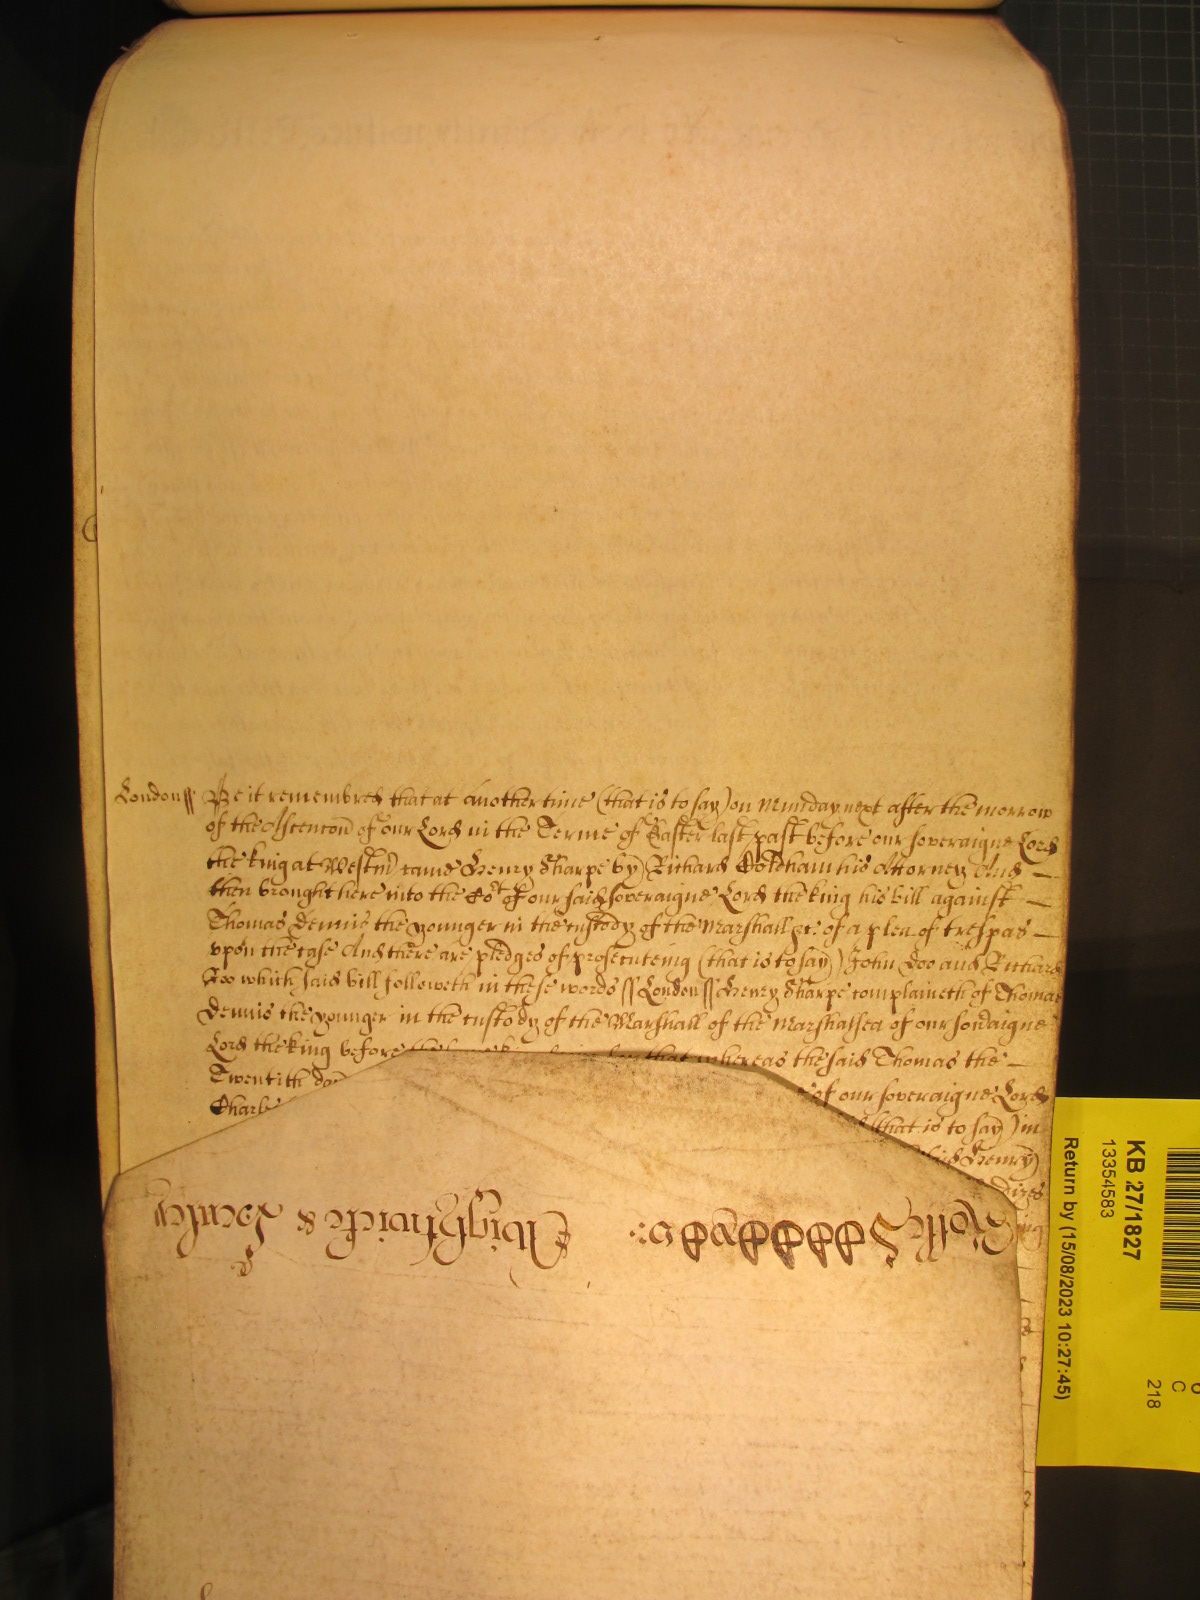 London ss Be it remembred that at another time (that is to say) on Munday next after the morrow
of the Ascencon of our Lord in the Terme of Easter last past before our soveraigne Lord
the king at Westm came Henry Sharpe by Richard his Attorney And
then brought here into the Cort of our said soveraigne Lord the king his bill against
Thomas Dennis the younger in the custody of the Marshall &c: of a plea of trespas
upon the case And there are pledges of prosecuteing (that is to say) John Doo and Richard
Roo which said bill followeth in these words ss London ss Henry Sharpe complaineth of Thomas
Dennis the younger in the custody of the Marshall of the Marshalsea of our sovaigne
Lord the king before that whereas the said Thomas the
Twentith day of our soveraigne Lord
Charles (that is to say) in
said Henry
Rolle
KB 27/1827
13354583
Return by (15/08/2023 10:27:45)
C
218